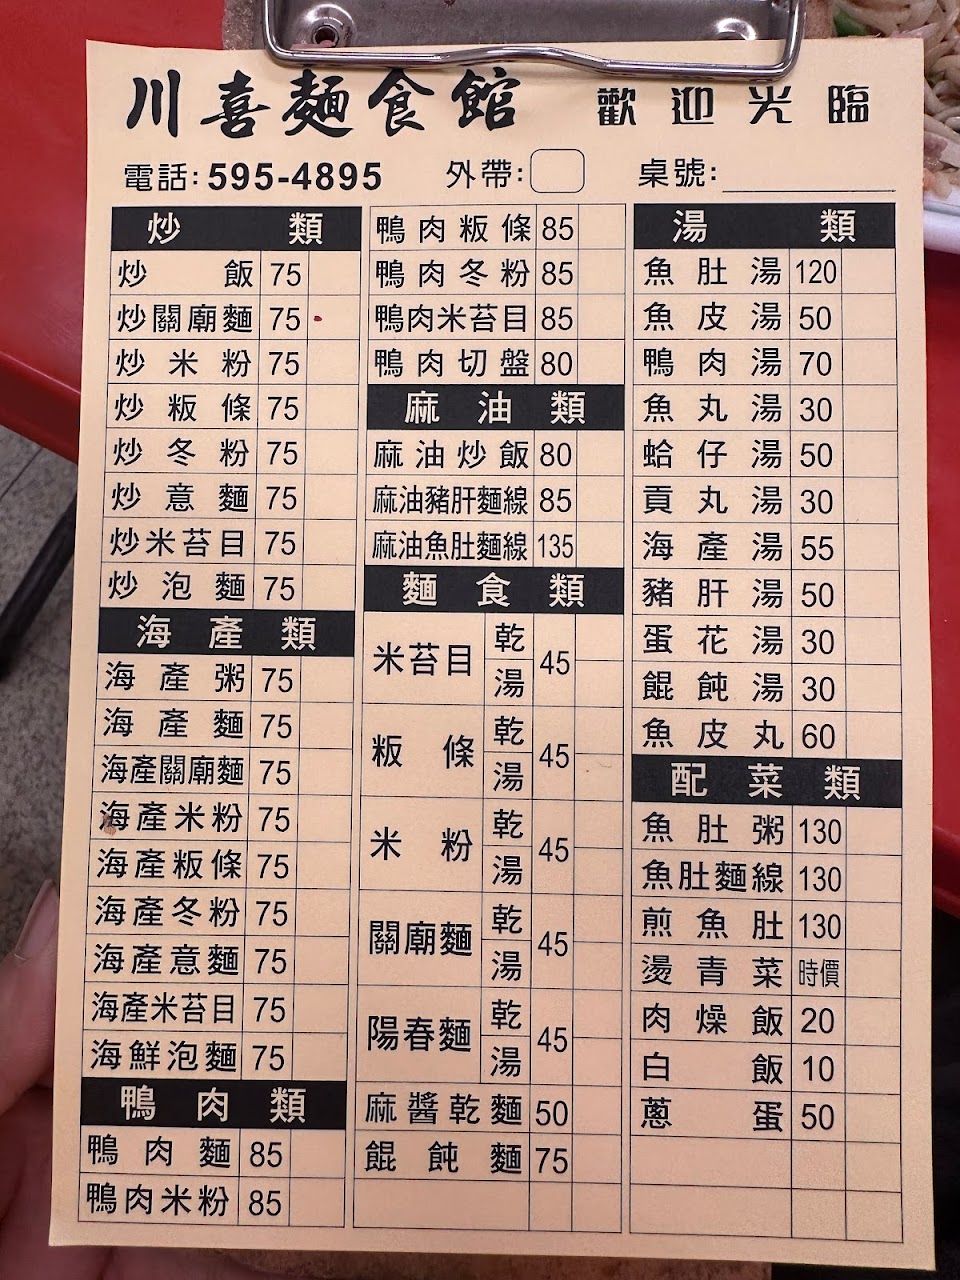 川喜麵食館 歡迎光臨
電話:595-4895 外帶: 桌號:
炒類
炒飯 75
炒關廟麵 75
炒米粉 75
炒粄條 75
炒冬粉 75
炒意麵 75
炒米苔目 75
炒泡麵 75
海產類
海產粥 75
海產麵 75
海產關廟麵 75
海產米粉 75
海產粄條 75
海產冬粉 75
海產意麵 75
海產米苔目 75
海鮮泡麵 75
鴨肉類
鴨肉麵 85
鴨肉米粉 85
鴨肉粄條 85
鴨肉冬粉 85
鴨肉米苔目 85
鴨肉切盤 80
麻油類
麻油炒飯 80
麻油豬肝麵線 85
麻油魚肚麵線 135
麵食類
米苔目 乾 湯 45
粄條 乾 湯 45
米粉 乾 湯 45
關廟麵 乾 湯 45
陽春麵 乾 湯 45
麻醬乾麵 50
餛飩麵 75
湯類
魚肚湯 120
魚皮湯 50
鴨肉湯 70
魚丸湯 30
蛤仔湯 50
貢丸湯 30
海產湯 55
豬肝湯 50
蛋花湯 30
餛飩湯 30
魚皮丸 60
配菜類
魚肚粥 130
魚肚麵線 130
煎魚肚 130
燙青菜 時價
肉燥飯 20
白飯 10
蔥蛋 50